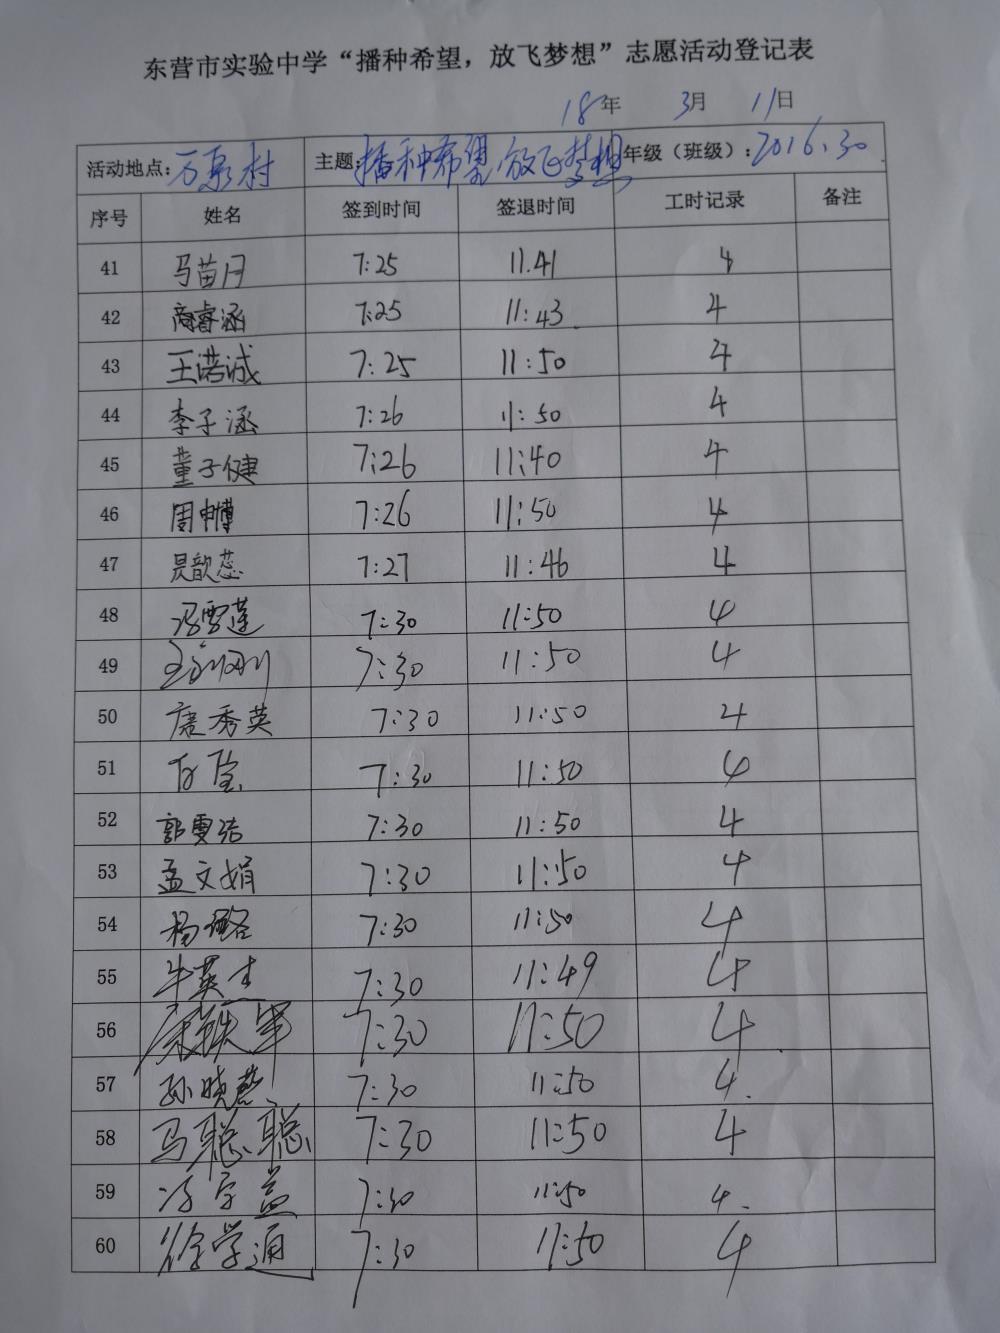 东营市实验中学“播种希望，放飞梦想”志愿活动登记表
18年 3月 11日
活动地点：万泉村 主题：播种希望 放飞梦想 年级（班级）：2016.30
序号 姓名 签到时间 签退时间 工时记录 备注
41 马苗月 7:25 11.41 4
42 商睿涵 7:25 11:43 4
43 王诺诚 7:25 11:50 4
44 李子涵 7:26 11:50 4
45 董子健 7:26 11:40 4
46 周中博 7:26 11:50 4
47 吴歆蕊 7:27 11:46 4
48 冯雪莲 7:30 11:50 4
49 7:30 11:50 4
50 唐秀英 7:30 11:50 4
51 7:30 11:50 4
52 郭雯洁 7:30 11:50 4
53 孟文娟 7:30 11:50 4
54 杨璐 7:30 11:50 4
55 牛英杰 7:30 11:49 4
56 7:30 11:50 4
57 孙晓燕 7:30 11:50 4.
58 马聪聪 7:30 11:50 4
59 冯学益 7:30 11:50 4.
60 徐学通 7:30 11:50 4